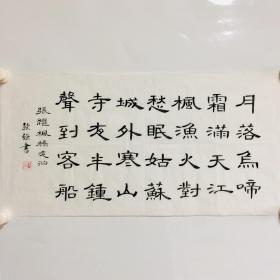 月落烏啼
霜滿天江
楓漁火對
愁眠姑蘇
城外寒山
寺夜半鍾
聲到客船
張繼楓橋夜泊